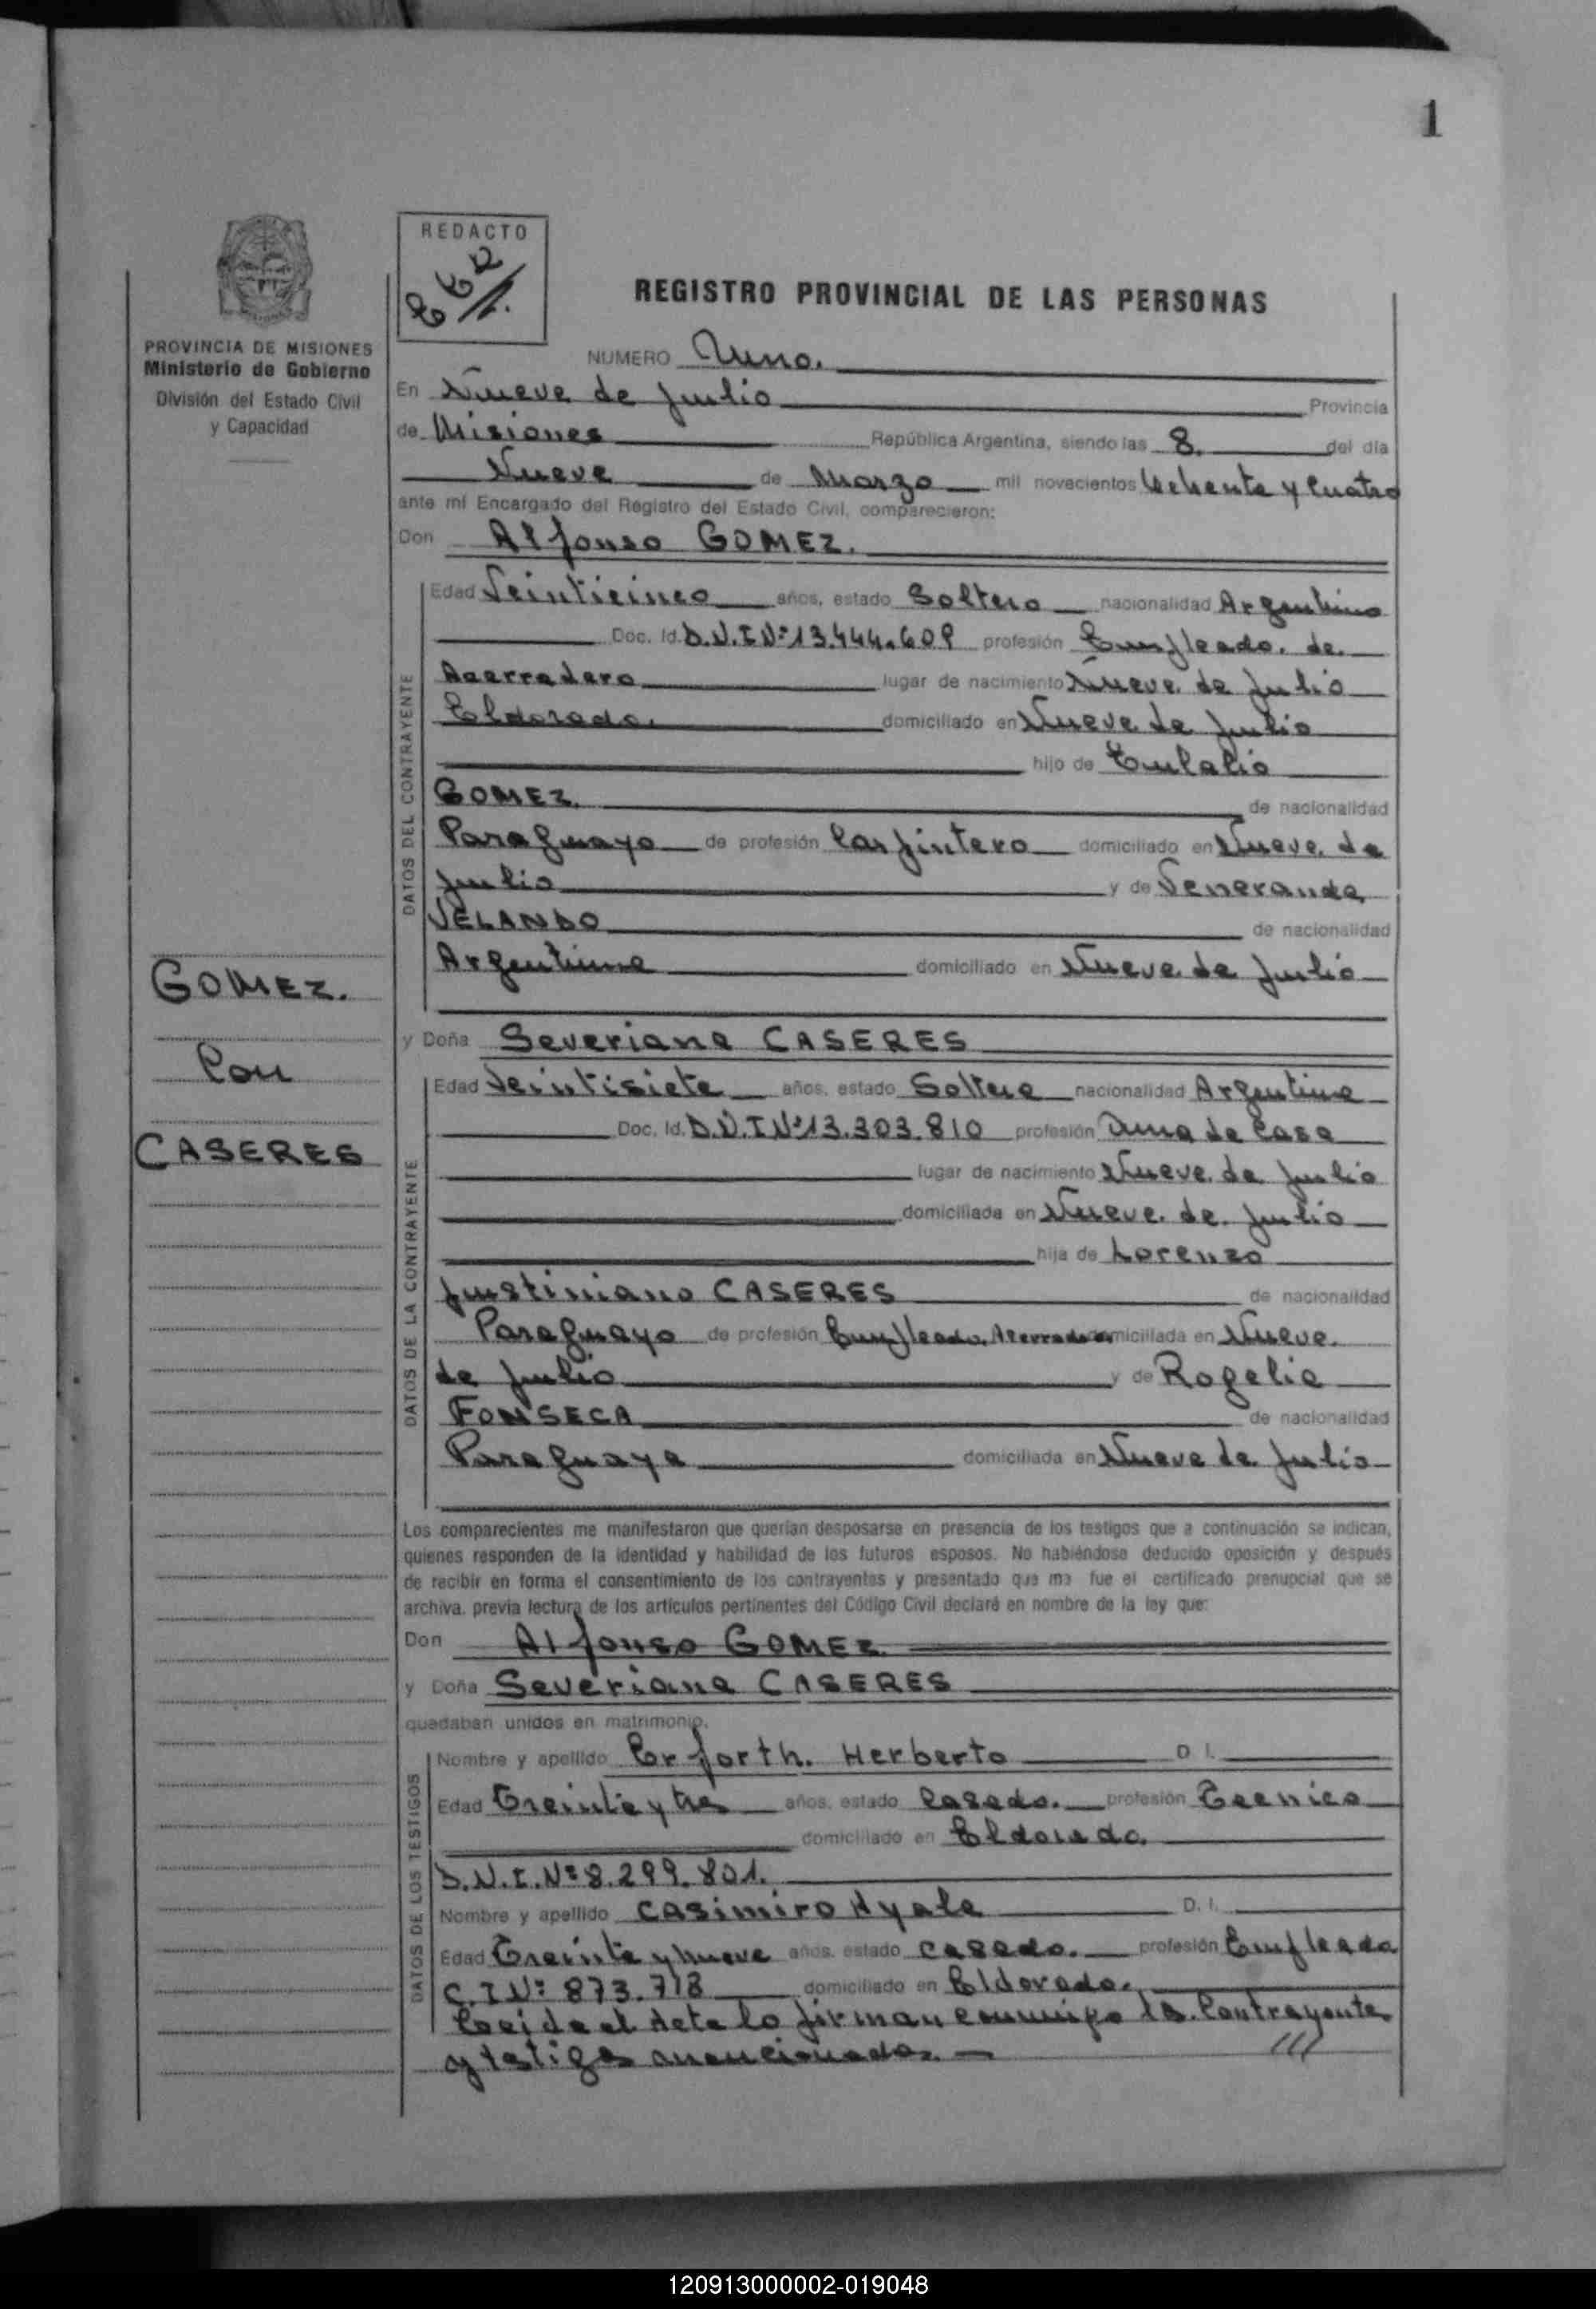 1
REDACTO
PROVINCIA DE MISIONES
Ministerio de Gobierno
División del Estado Civil
y Capacidad
REGISTRO PROVINCIAL DE LAS PERSONAS
NUMERO Uno.
En Nueve de Julio Provincia
de Misiones República Argentina, siendo las 8. del día
Nueve de Marzo mil novecientos Ochenta y Cuatro
ante mí Encargado del Registro del Estado Civil, comparecieron:
Don Alfonso GOMEZ.
DATOS DEL CONTRAYENTE
Edad Veinticinco años, estado Soltero nacionalidad Argentino
Doc. Id. D.N.I Nº 13.444.609 profesión Empleado. de.
Acerradero lugar de nacimiento Nueve de Julio
Eldorado. domiciliado en Nueve de Julio
hijo de Eulalio
GOMEZ. de nacionalidad
Paraguayo de profesión Carpintero domiciliado en Nueve de
Julio y de Veneranda
VELANDO de nacionalidad
Argentina domiciliado en Nueve de Julio
GOMEZ.
Con
CASERES
y Doña Severiana CASERES
DATOS DE LA CONTRAYENTE
Edad Veintisiete años, estado Soltera nacionalidad Argentina
Doc. Id. D.N.I Nº 13.303.810 profesión Ama de Casa
lugar de nacimiento Nueve de Julio
domiciliada en Nueve. de. Julio
hija de Lorenzo
Justiniano CASERES de nacionalidad
Paraguayo de profesión Empleado Acerradero domiciliada en Nueve.
de Julio y de Rogelia
FONSECA de nacionalidad
Paraguaya domiciliada en Nueve de Julio
Los comparecientes me manifestaron que querían desposarse en presencia de los testigos que a continuación se indican,
quienes responden de la identidad y habilidad de los futuros esposos. No habiéndose deducido oposición y después
de recibir en forma el consentimiento de los contrayentes y presentado que me fue el certificado prenupcial que se
archiva, previa lectura de los artículos pertinentes del Código Civil declaré en nombre de la ley que:
Don Alfonso GOMEZ
y Doña Severiana CASERES
quedaban unidos en matrimonio.
DATOS DE LOS TESTIGOS
Nombre y apellido Erforth. Herberto D.I.
Edad Treinta y tres años, estado Casado. profesión Tecnico
domiciliado en Eldorado.
D.N.I. Nº 8.299.801.
Nombre y apellido Casimiro Ayala D.I.
Edad Treinta y nueve años, estado Casado. profesión Empleado
C.I Nº 873.718 domiciliado en Eldorado.
Leida el Acta lo firman conmigo los Contrayentes
y testigos mencionados.- ///
120913000002-019048